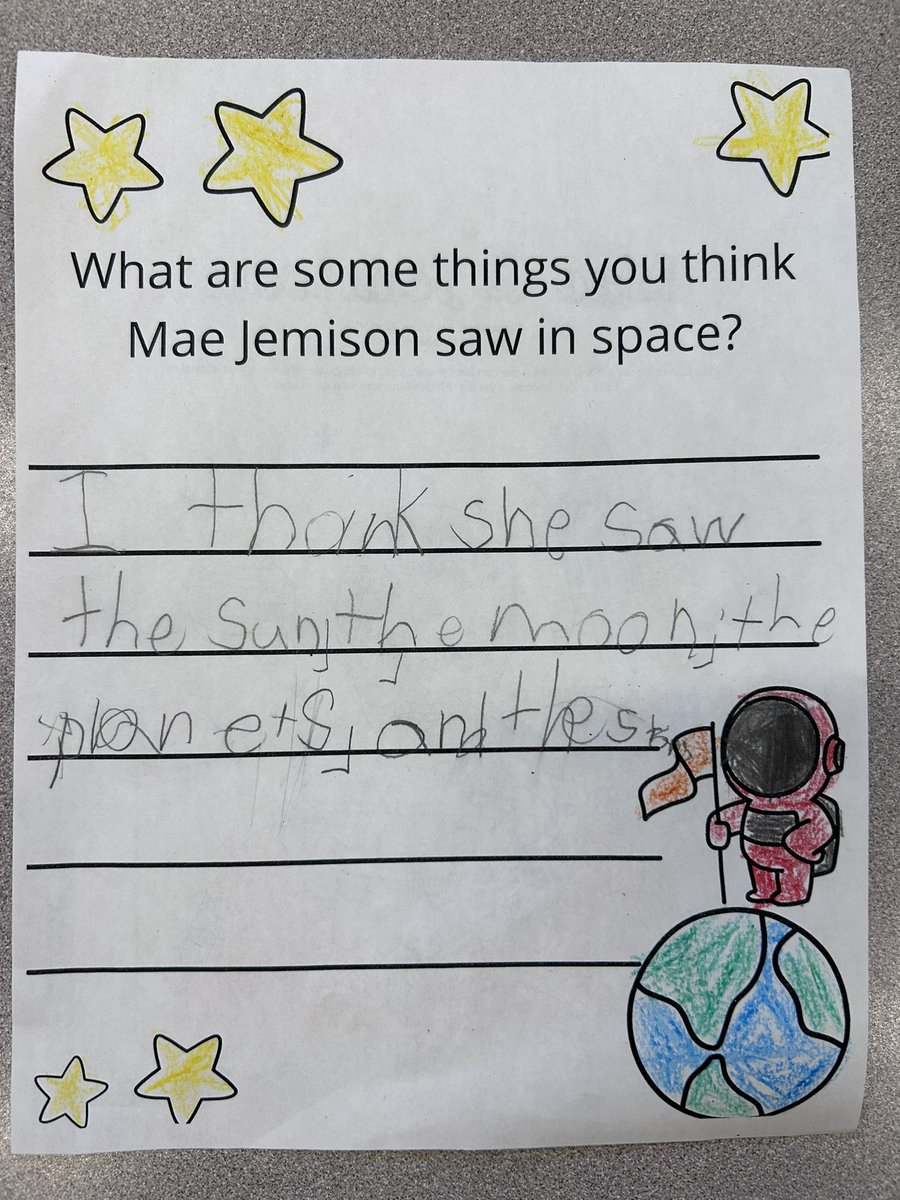 What are some things you think
Mae Jemison saw in space?
I think she saw
the sun, the moon, the
planets, and the